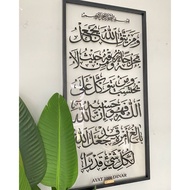 بسم الله الرحمن الرحيم
ومن يتق الله يجعل
له مخرجا ويرزقه من حيث لا
يحتسب ومن يتوكل على
الله فهو حسبه إن الله
بالغ أمره قد جعل الله
لكل شيء قدرا
AYAT 1000 DINAR